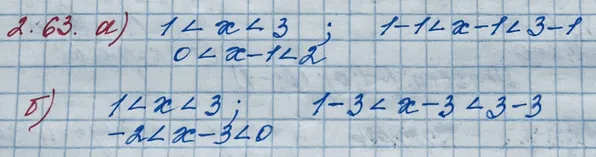 2.63. а) 1<x<3; 1-1<x-1<3-1
0<x-1<2
б) 1<x<3; 1-3<x-3<3-3
-2<x-3<0